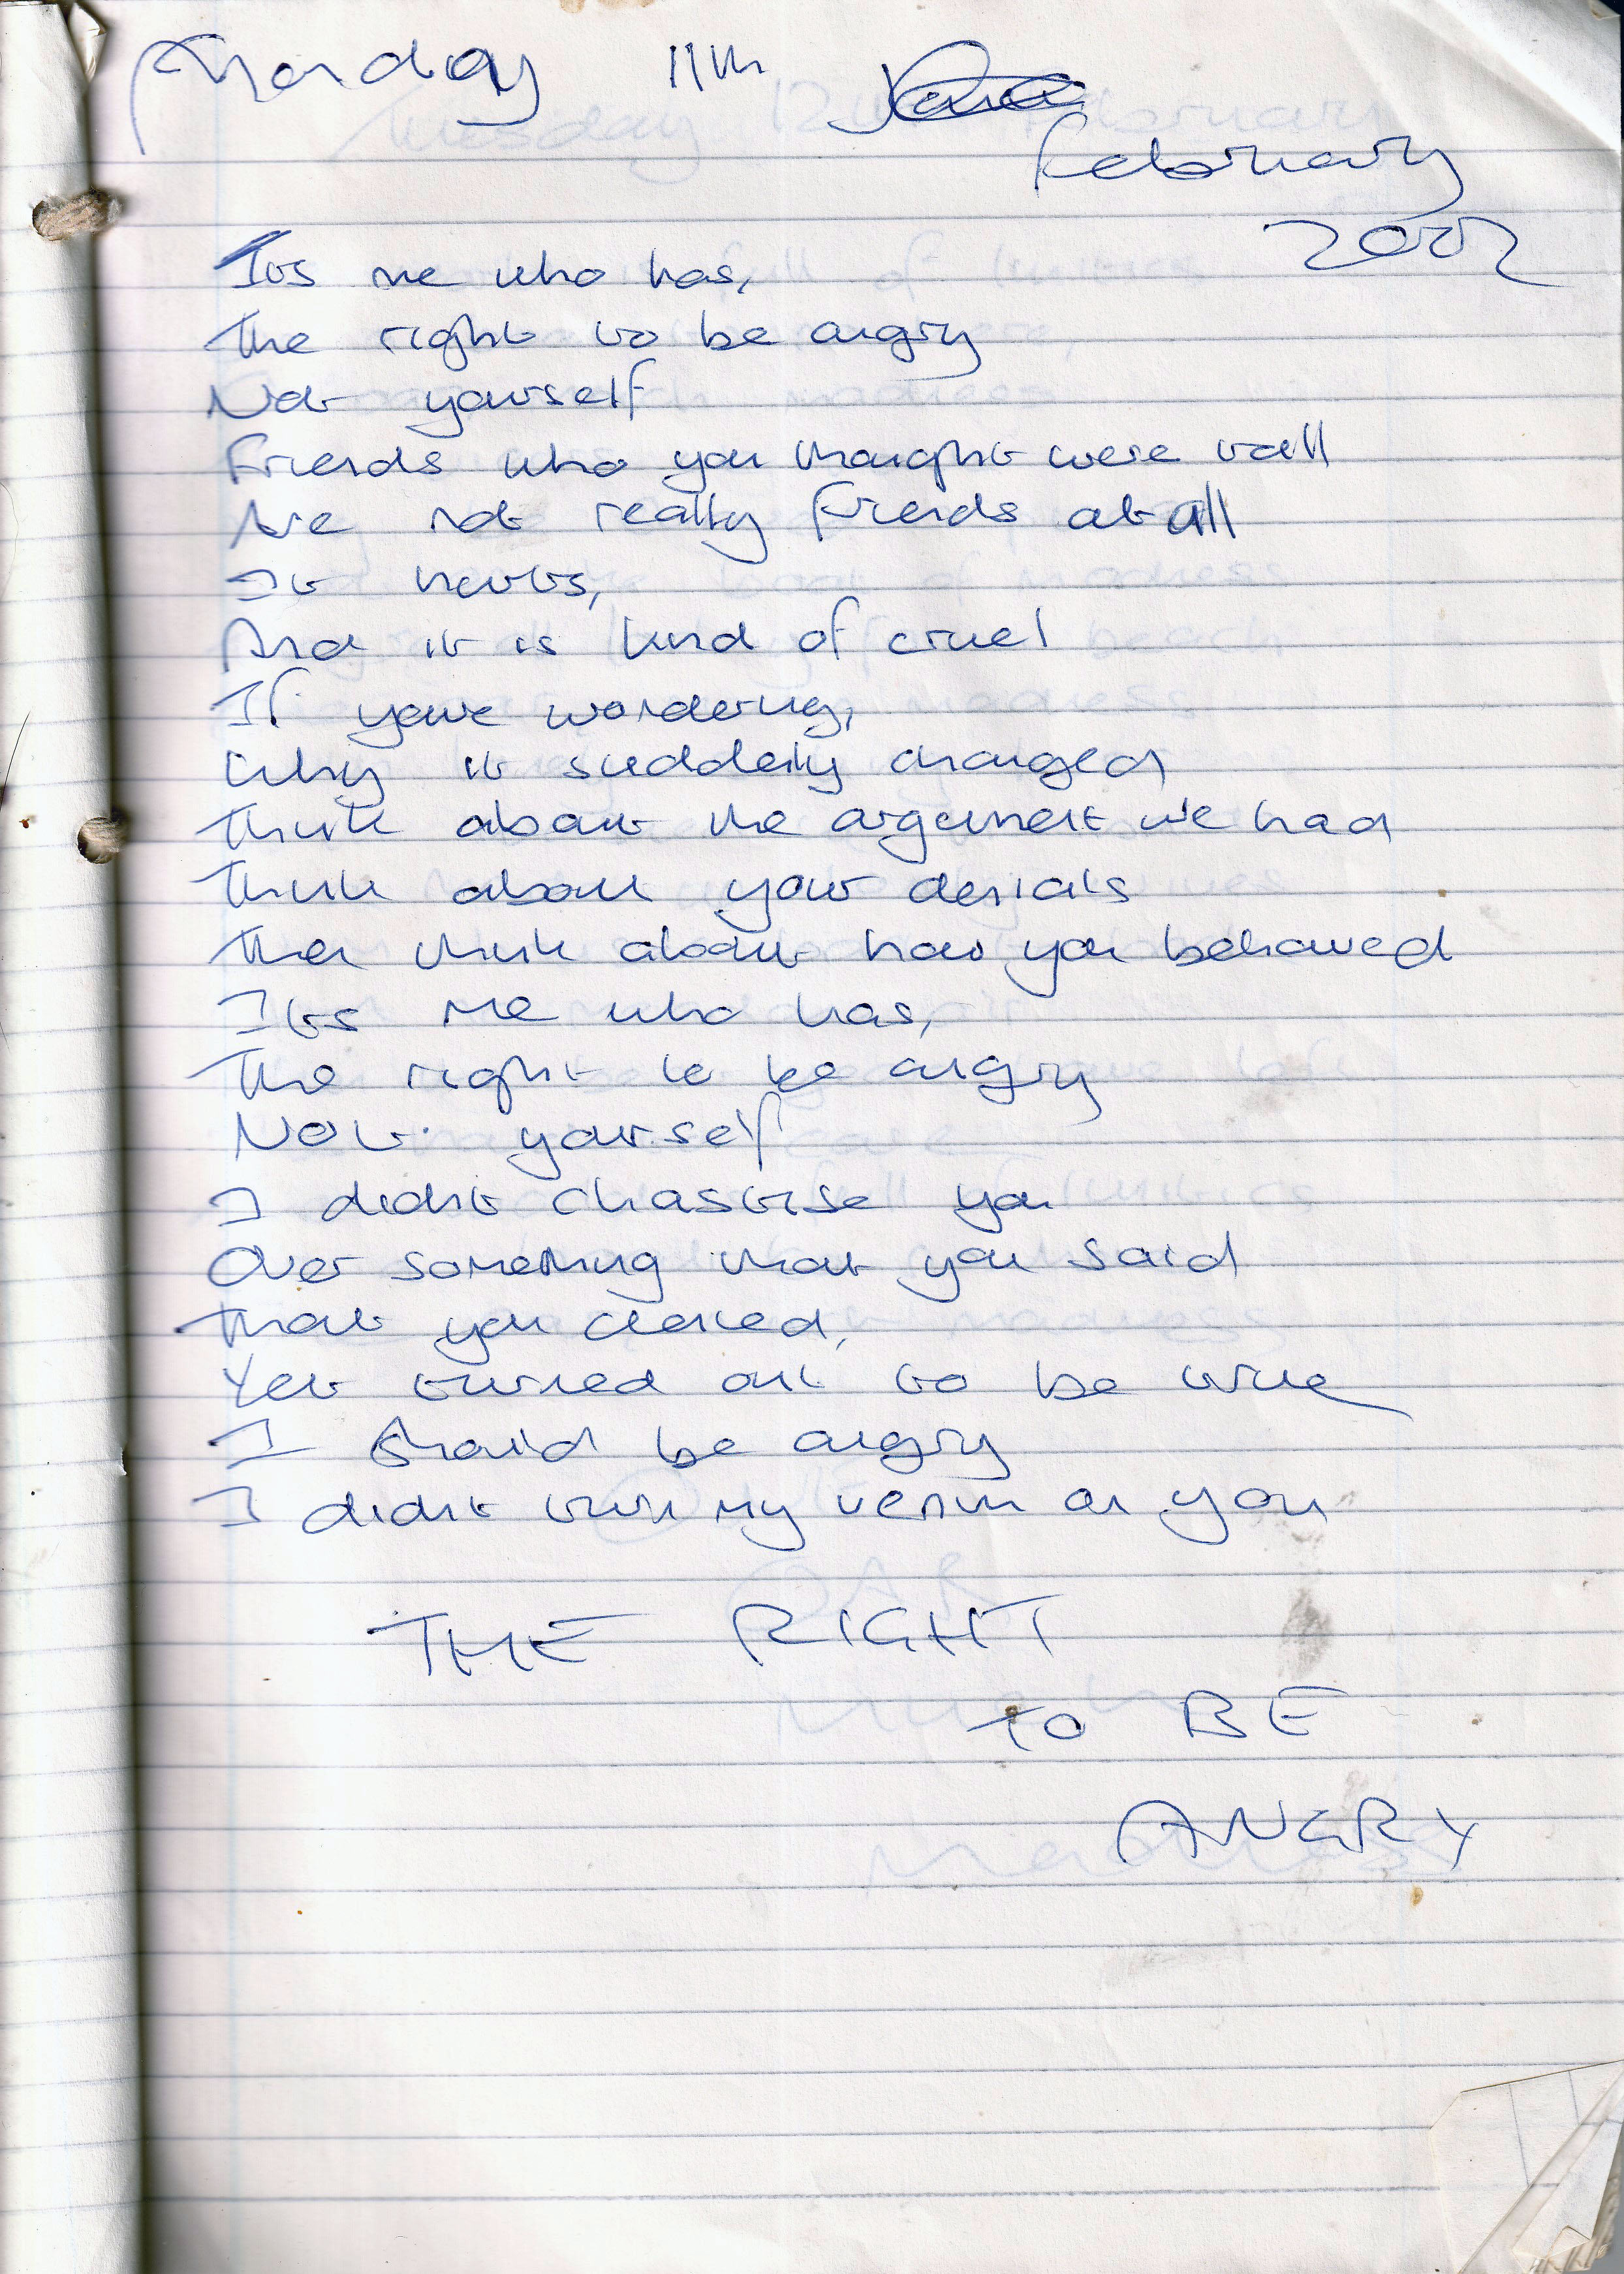 Monday 11th
February
2002
Its me who has,
The right to be angry
Not yourself
Friends who you thought were tall
Are not really friends at all
It hurts,
And it is kind of cruel
If youre wondering,
Why it suddenly changed
Think about the argument we had
Think about your denials
Then think about how you behaved
Its me who has,
The right to be angry
Not yourself
I didnt chastise you
Over something that you said
That you denied,
Yet turned out to be true
I should be angry
I didnt turn my venim on you
THE RIGHT
TO BE
ANGRY